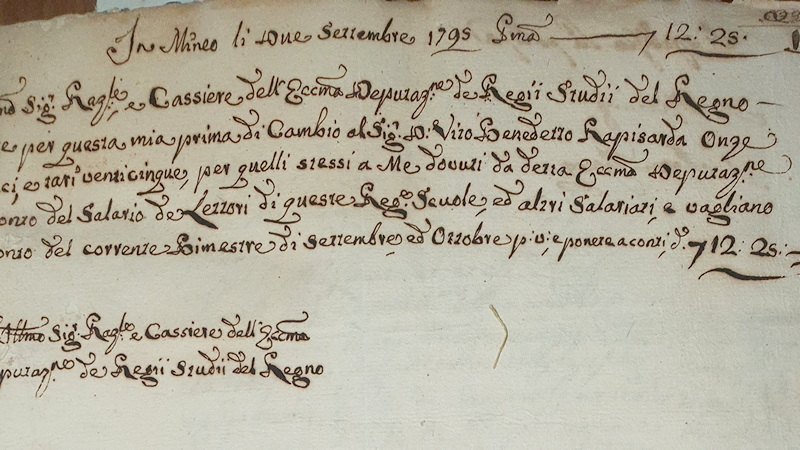 In Mineo li Due Settembre 1795 Pma 12: 25.
Sigr Razle e Cassiere dell'Eccma Deputazne de Regii Studii del Regno
per questa mia prima di Cambio al Sigr D: Vito Benedetto Rapisarda Onze
e tarì venticinque, per quelli stessi a Me dovuti da detta Eccma Deputazne
del Salario de Lettori di queste Rege Scuole, ed altri Salariati, e vagliano
del corrente Bimestre di Settembre, ed Ottobre p: v: e ponete a conti, d. 12: 25:
Sigr Razle e Cassiere dell'Eccma
de Regii Studii del Regno